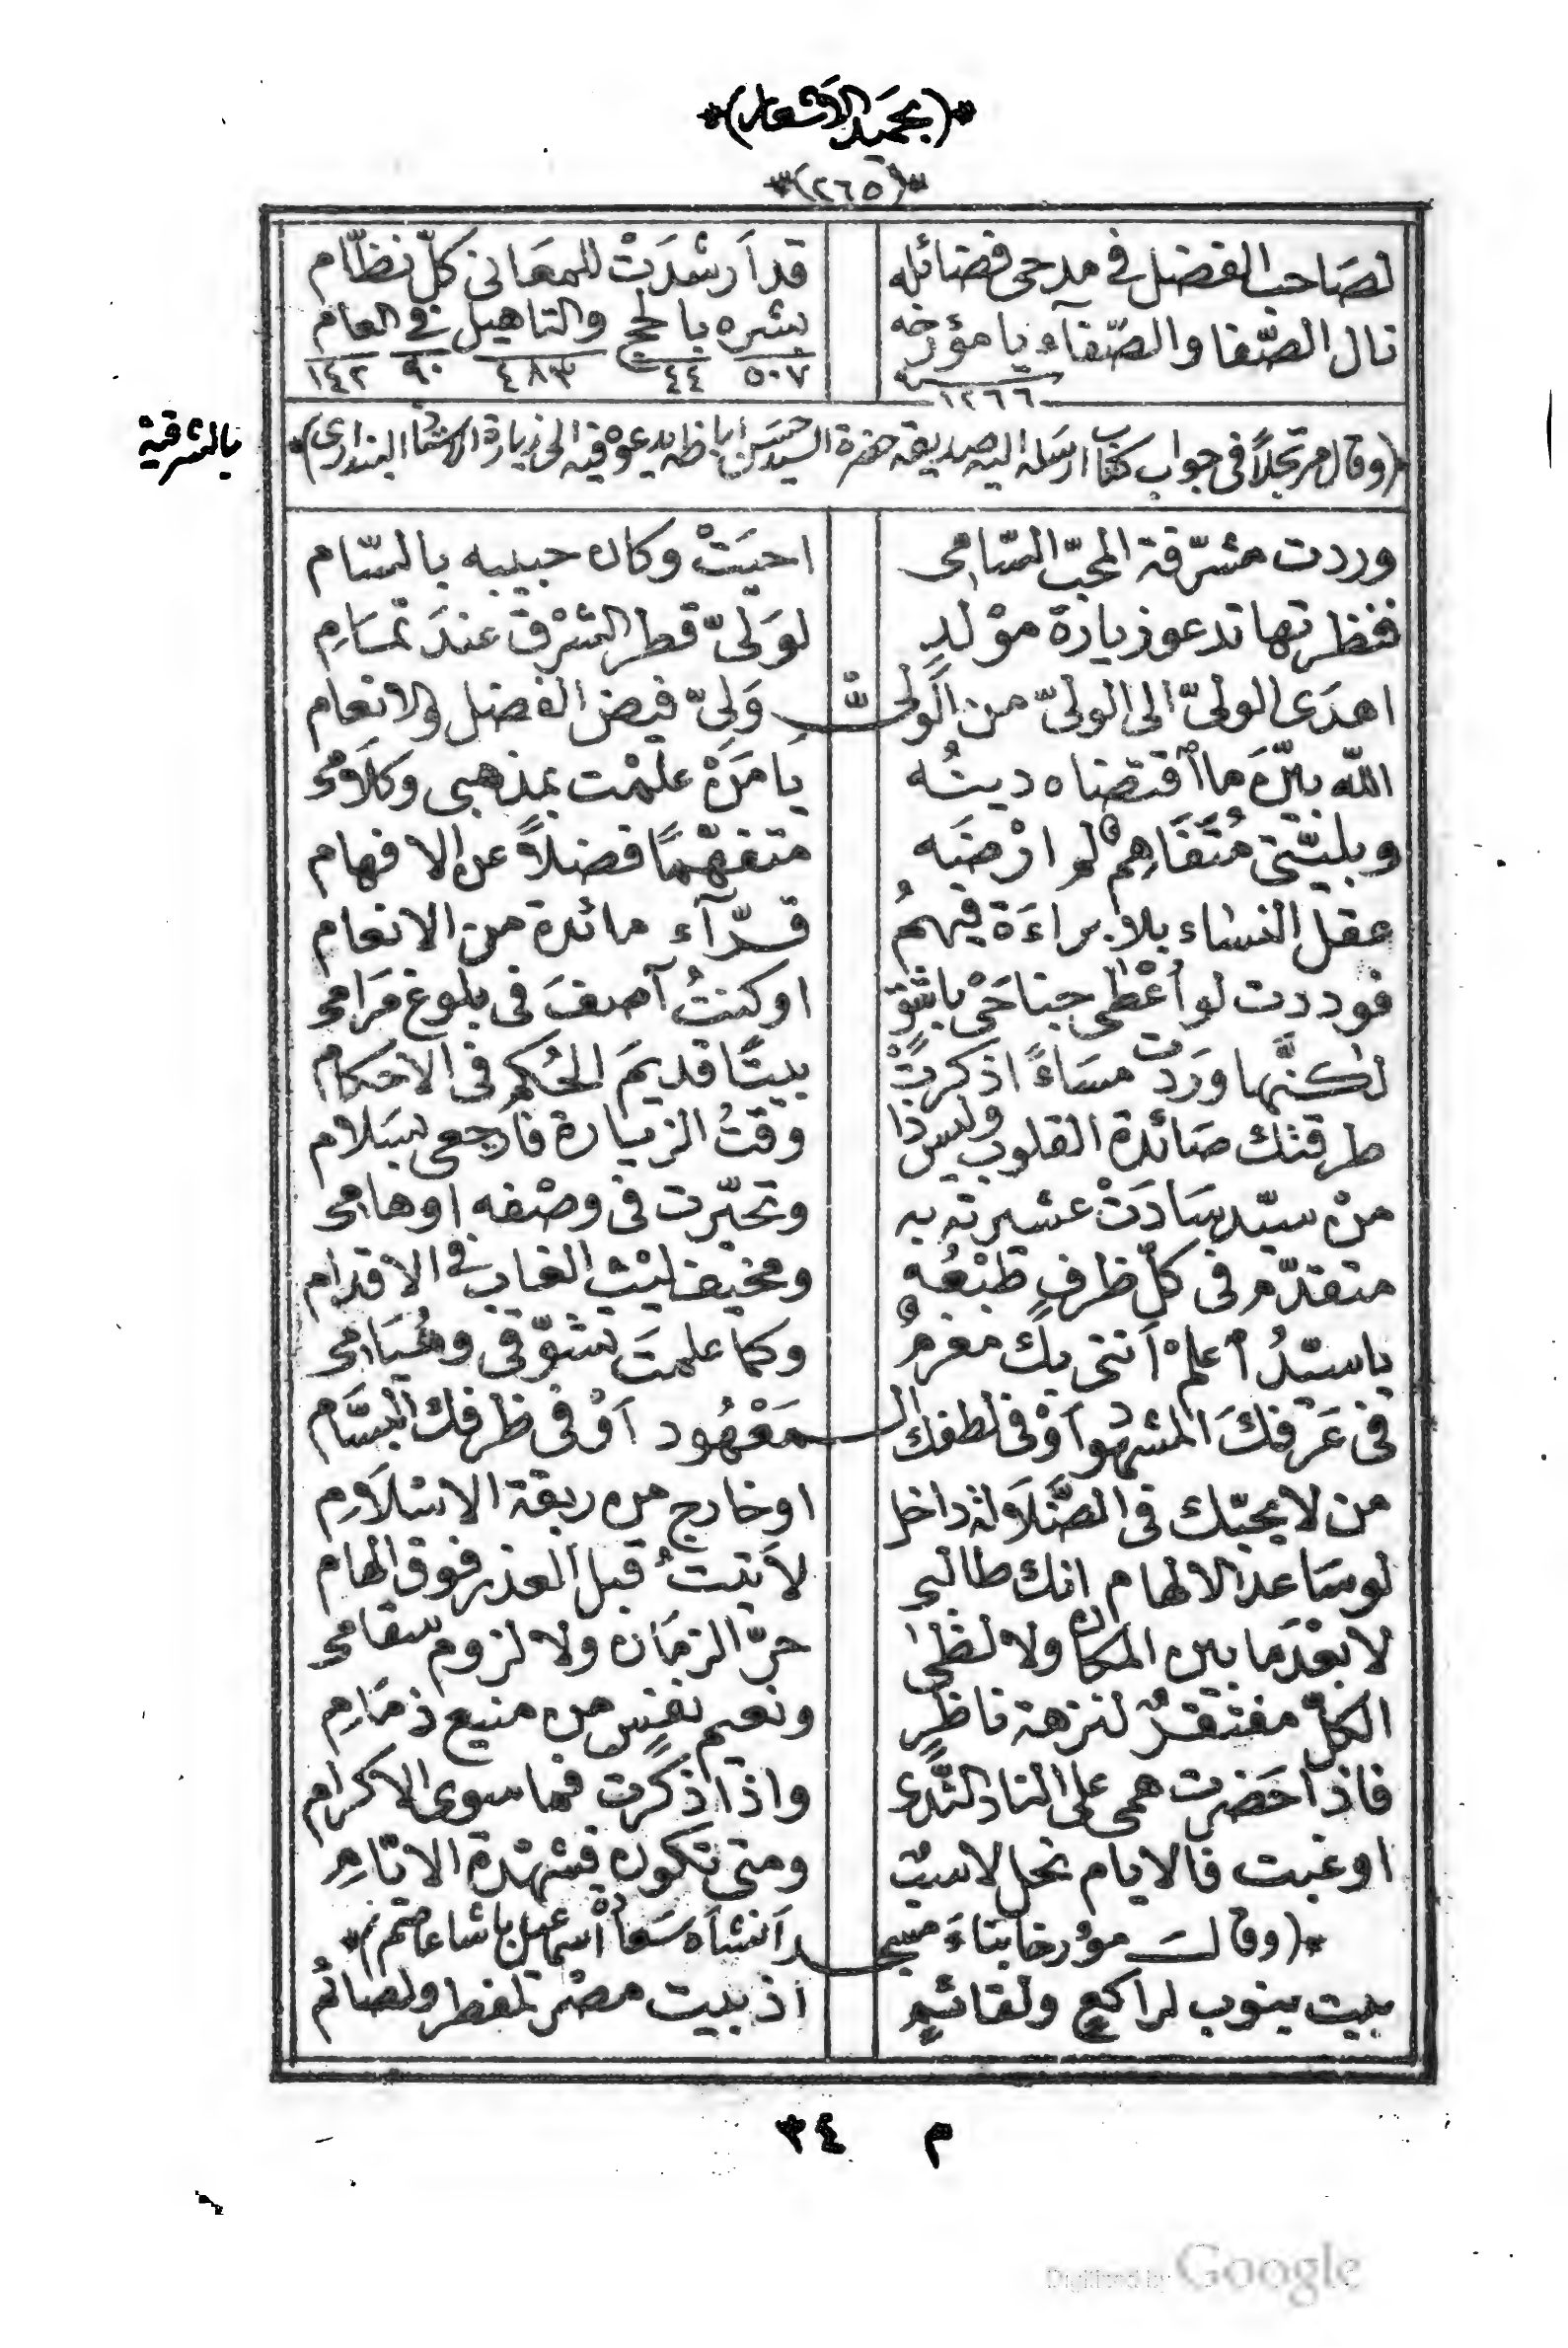 *(بحميد الاشعار)*
*(٢٦٥)*
لصَاحب الفضل فى مدحى فضائله قد اَرشدَتْ للمعَانى كلّ نظّام
نال الصّفا والصّفآء يا مؤرخه بشره بالحج والتاهيل فى العام
١٢٦٦ ٥٠٧ ٤٤ ٤٨٣ ٩٠ ١٤٢
(وقال مرتجلاً فى جواب كتاب ارسَله اليه صديقه حضرة السيد حسَن اباظه يدعوه فيه الى زيارة
بالشرقية
وردت مشرّفة المحبّ السّامى احيَتْ وكان حبيبه بالسّام
فنظرتها تدعو زيارة موْلدٍ لوَلىّ قطر الشرْق عندَ تمسَامِ
اهدَى الولىّ الى الولىّ من الَولىّ وَلِىّ فيض الفضل والانعام
الله بيّنَ ما اُقتضاه ديتُه يا مَنْ علمْت بمذهبى وكلَامى
وبليّتى مُتَفَاهِمٌ لم ارْضَه متفهّمًا فضلاً عن الافهام
عقل النسَاء بلا براءَة فيهمُ قدّآء مائدة من الانعام
فوددت لو اُعْطى جناحَىْ باشَقٍ او كنتُ آصفَ فى بلوغ مَرَامى
لكنّها ورَدت مسَاءً اذكرتْ بيتًا قديمَ الحُكم فى الاحكام
طرقتك صَائدة القلوب وليس ذا وقتُ الزيارة فارجعى بسَلام
منْ سيّد سَادَتْ عشيرته به وتحيّرت فى وصْفه اوهامى
متقدّم فى كلّ ظرفٍ طبْعُه ومخيف ليْث الغاب فى الاقدام
يا سيّدُ اُعلمْ اَننى بك مغرمٌ وكما علمتَ تشوّقى وهُيَامى
فى عَرْفكَ المشهود اَوْ فى لطفك الـمَعْهُود اَوْ فى ظرفك البسَّام
من لا يحبّك فى الضّلَالة داخل او خارج من ربقة الاسْلَامِ
لو سَاعد الالهام انك طالبى لأتيتُ قبل العذر فوق الهام
لا بعْدَ ما بين المكان ولا لظى حرّ الزمَان ولا لزوم سقامى
الكلّ مفتقرٌ لنزهة ناظرٍ ونعيم نفسٍ من منيع ذمَامِ
فاذا حَضرت همى على الناد النّدى واذا ذكرت فما سوى الاكرام
او غبت فالايام نحل لاسبٌ ومتى تكون فشهْدة الايّامِ
*(وقالـــ مؤرخا بنَاءَ مسجـــد اَنشاَه سَعادة اُسماعيل باشا عاصم)*
بيت ينوب لراكعٍ ولقائمٍ اذ بيت مضرّ لمفطر ولصائم
م ٣٤
Digitized by Google